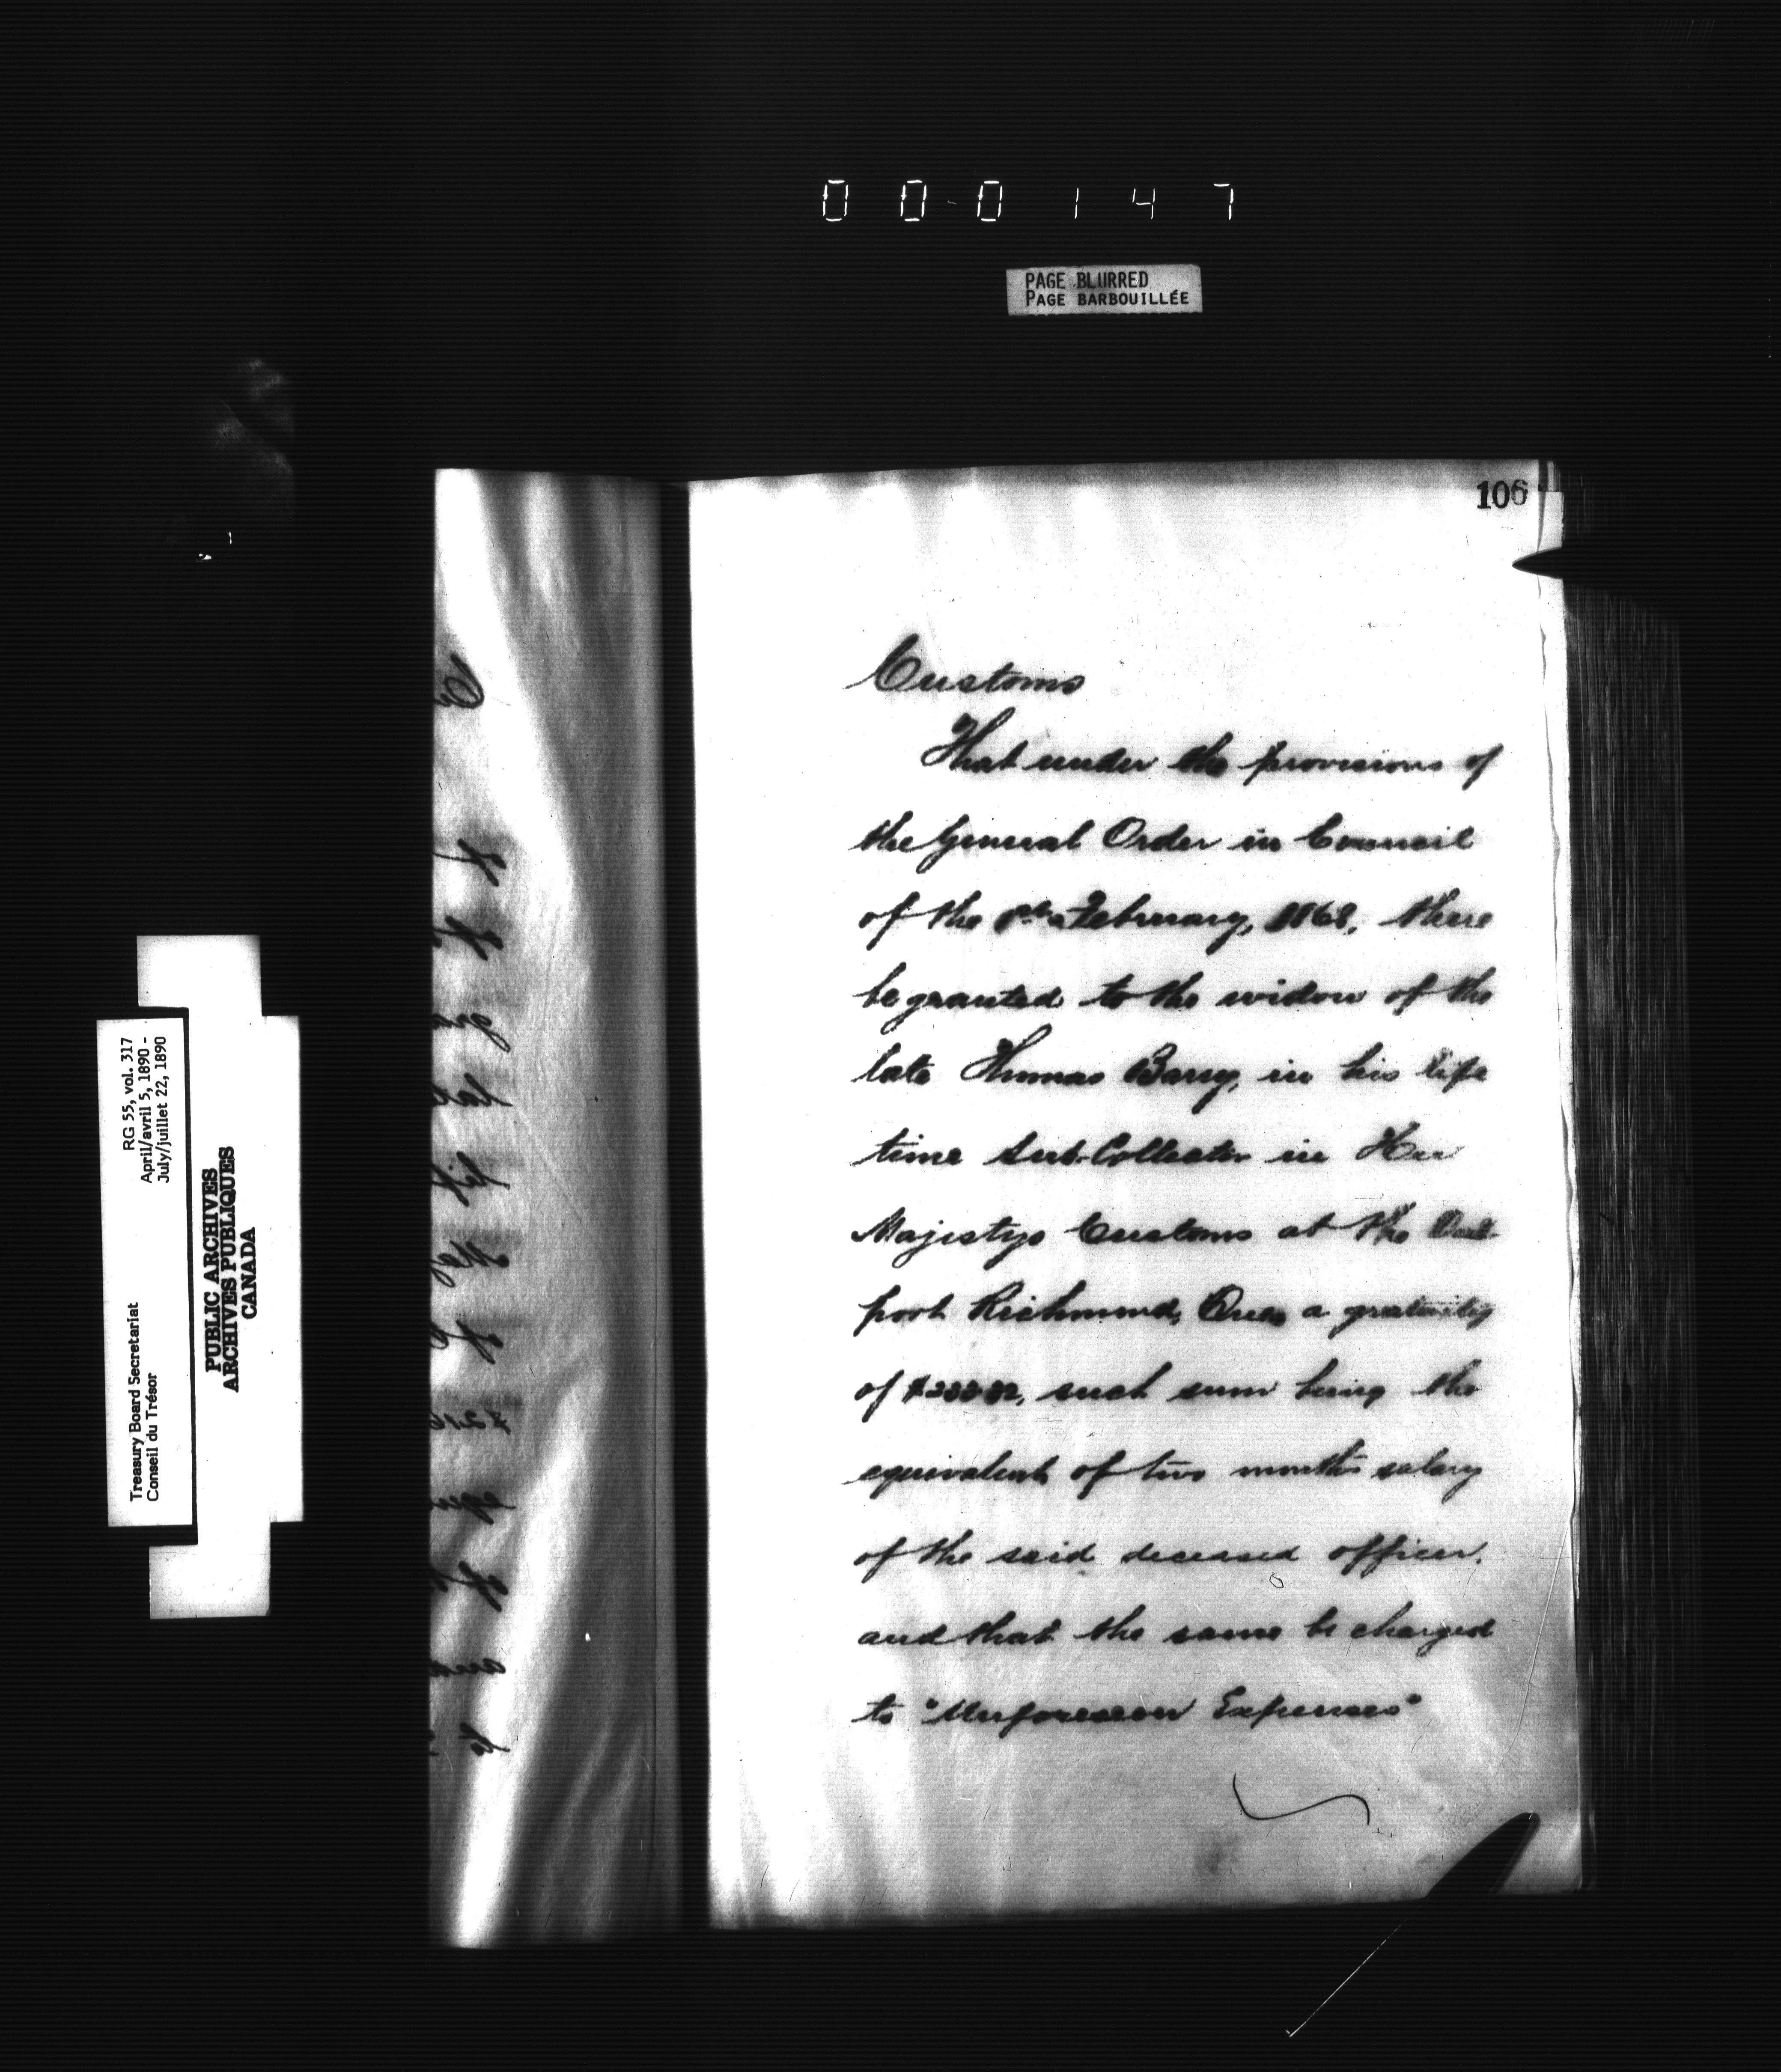 000147
PAGE BLURRED
PAGE BARBOUILLÉE
106
Customs
That under the provisions of
the General Order in Council
of the February, 1868, there
be granted to the widow of the
late Thomas Barry, in his life
time Sub-Collector in Her
Majestys Customs at the Out
port Richmond, Que a gratuity
of such sum being the
equivalent of two months salary
of the said deceased officer,
and that the same be charged
to "Unforeseen Expenses"
RG 55, vol. 317
April/avril 5, 1890 -
July/juillet 22, 1890
Treasury Board Secretariat
Conseil du Trésor
PUBLIC ARCHIVES
ARCHIVES PUBLIQUES
CANADA